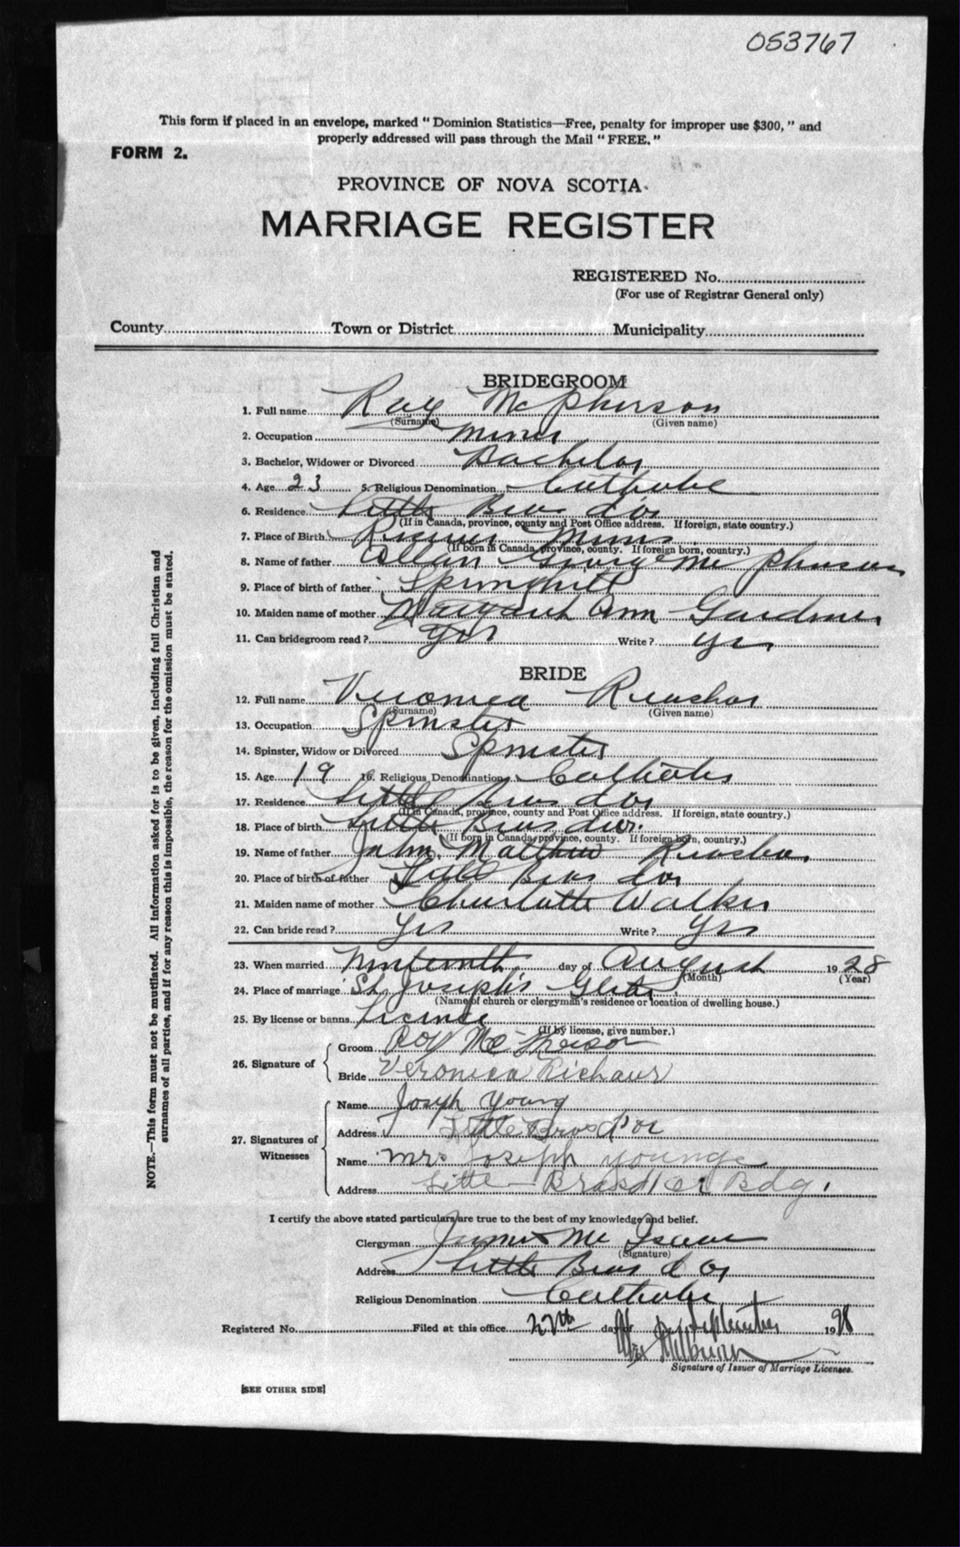 053767
This form if placed in an envelope, marked "Dominion Statistics—Free, penalty for improper use $300," and
properly addressed will pass through the Mail "FREE."
FORM 2.
PROVINCE OF NOVA SCOTIA
MARRIAGE REGISTER
REGISTERED No.
(For use of Registrar General only)
County Town or District Municipality
NOTE.—This form must not be mutilated. All information asked for is to be given, including full Christian and
surnames of all parties, and if for any reason this is impossible, the reason for the omission must be stated.
BRIDEGROOM
1. Full name Roy McPherson
(Surname) (Given name)
2. Occupation Miner
3. Bachelor, Widower or Divorced Bachelor
4. Age 23 5. Religious Denomination Catholic
6. Residence Little Bras d'or
(If in Canada, province, county and Post Office address. If foreign, state country.)
7. Place of Birth Mines
(If born in Canada, province, county. If foreign born, country.)
8. Name of father Allan George McPherson
9. Place of birth of father Springhill
10. Maiden name of mother Margaret Ann Gardiner
11. Can bridegroom read? Yes Write? yes
BRIDE
12. Full name Veronica
(Surname) (Given name)
13. Occupation Spinster
14. Spinster, Widow or Divorced Spinster
15. Age 19 16. Religious Denomination Catholic
17. Residence Little Bras dor
(If in Canada, province, county and Post Office address. If foreign, state country.)
18. Place of birth Little Bras dor
(If born in Canada, province, county. If foreign born, country.)
19. Name of father John Matthew
20. Place of birth of father Little Bras dor
21. Maiden name of mother Charlotte Walker
22. Can bride read? Yes Write? Yes
23. When married Ninteenth day of August 1928
(Month) (Year)
24. Place of marriage St. Joseph's Glebe
(Name of church or clergyman's residence or location of dwelling house.)
25. By license or banns Licence
(If by license, give number.)
26. Signature of
Groom Roy McPherson
Bride Veronica
27. Signatures of Witnesses
Name Joseph Young
Address Little Bras d'or
Name Mrs Joseph Young
Address Little Bras d'or Bdg.
I certify the above stated particulars are true to the best of my knowledge and belief.
Clergyman James Mc Isaac
(Signature)
Address Little Bras d or
Religious Denomination Catholic
Registered No. Filed at this office 22nd day of September 1928
Signature of Issuer of Marriage Licenses.
[SEE OTHER SIDE]